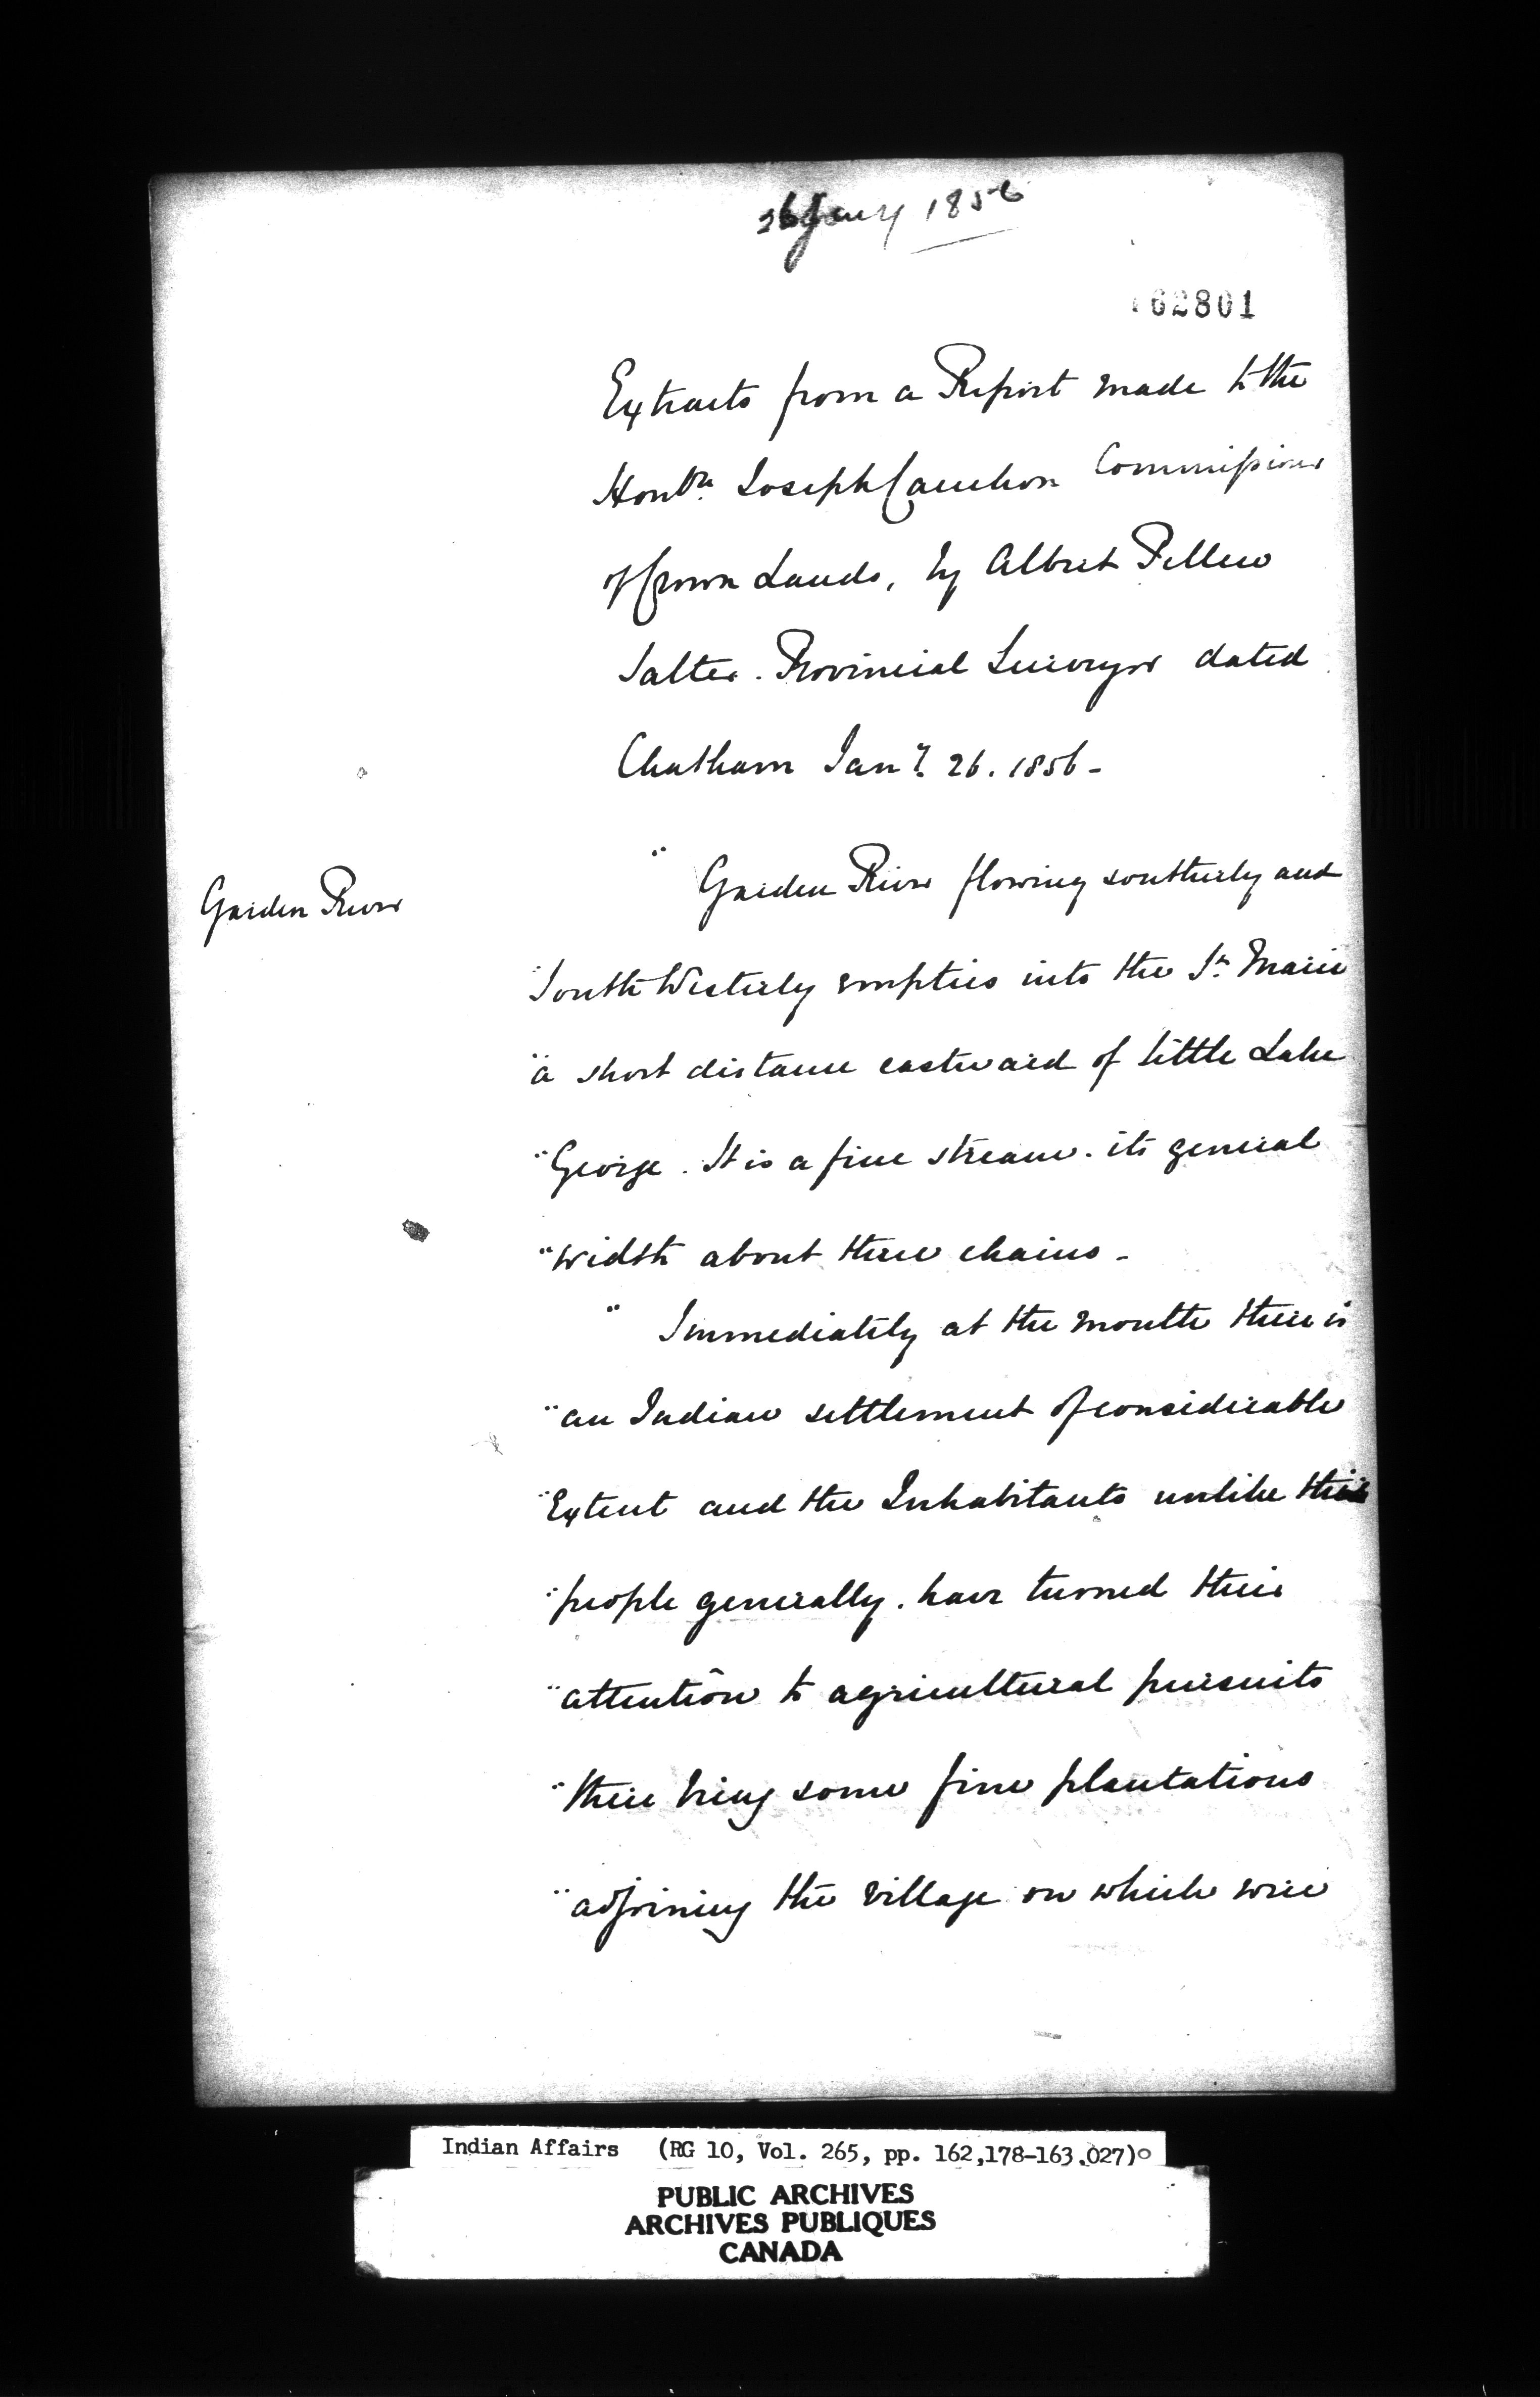 26 Jany 1856
162801
Extracts from a Report made to the
Honble Joseph Cauchon Commissioner
of Crown Lands, by Albert Pellew
Salter. Provincial Surveyor dated
Chatham Jany. 26. 1856-
Garden River
" Garden River flowing southerly and
"South Westerly empties into the St. Marie
"a short distance eastward of little Lake
"George. It is a fine stream. its general
"width about three chains -
" Immediately at the mouth there is
"an Indian settlement of considerable
"Extent and the Inhabitants unlike their
"people generally. have turned their
"attention to agricultural pursuits
"there being some fine plantations
"adjoining the village on which were
Indian Affairs (RG 10, Vol. 265, pp. 162,178-163,027)
PUBLIC ARCHIVES
ARCHIVES PUBLIQUES
CANADA